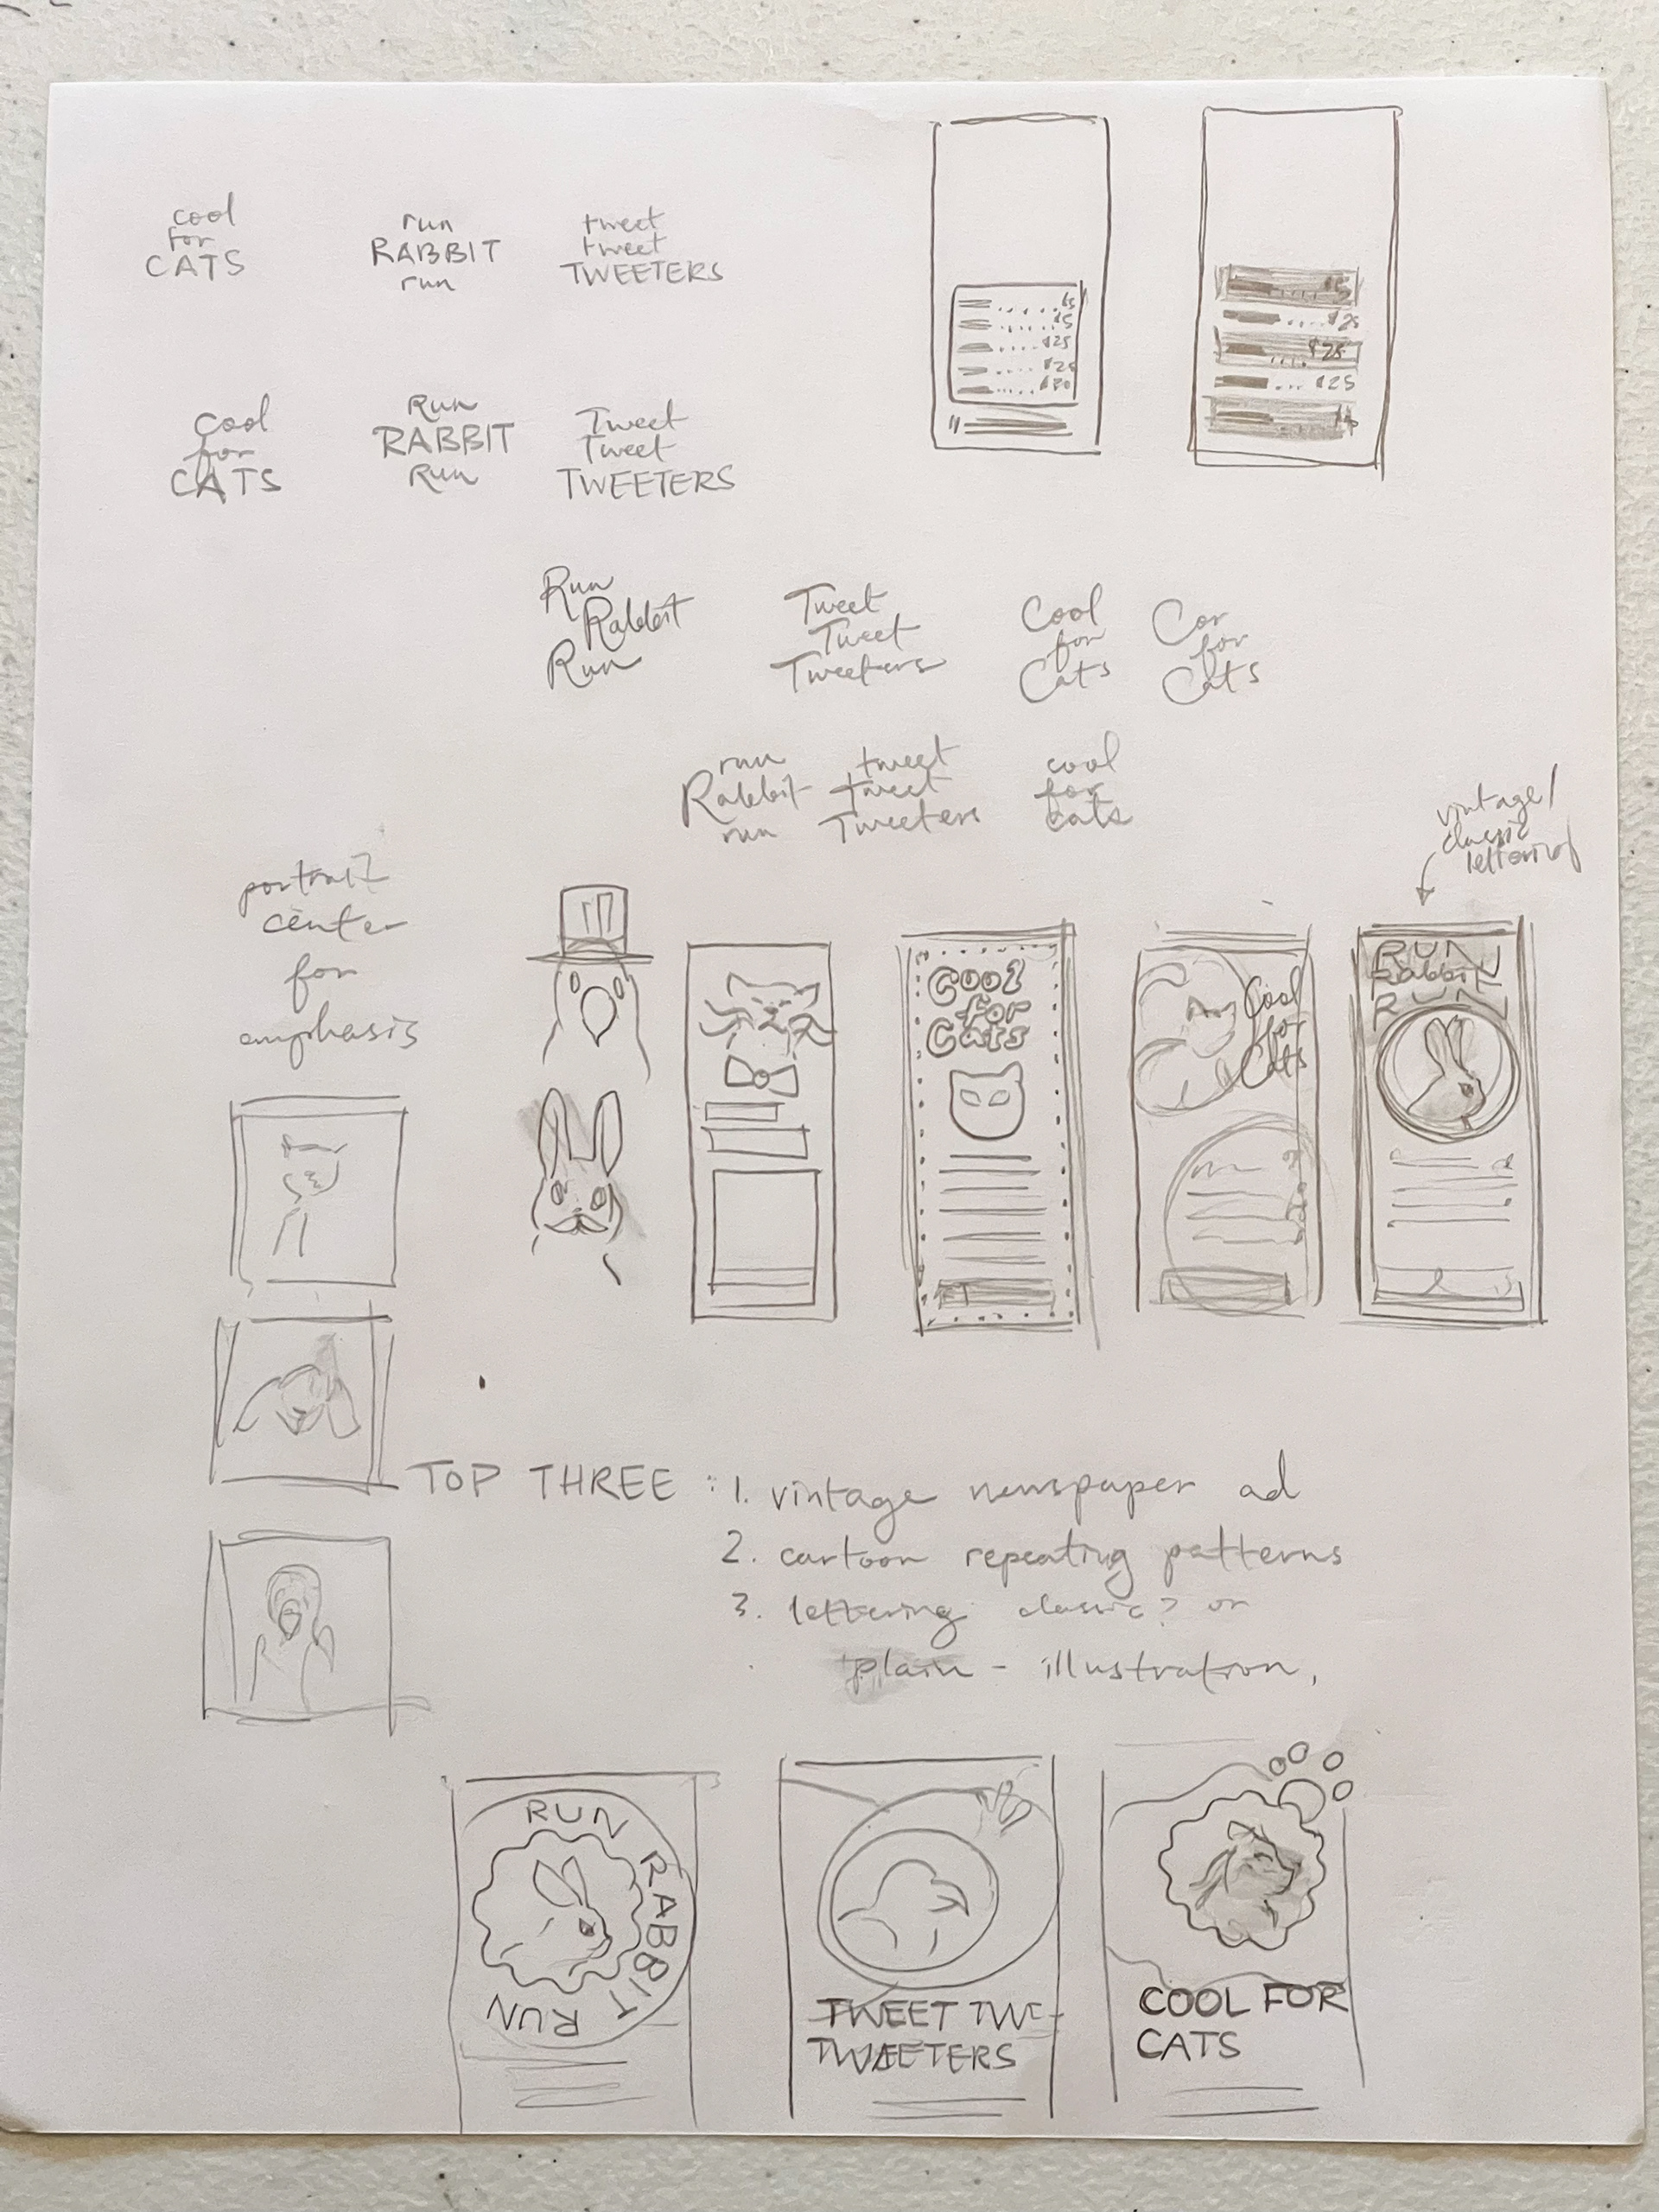 cool
for
CATS
run
RABBIT
run
tweet
tweet
TWEETERS
$5
$5
$25
$25
$30
$5
$25
$25
$25
Cool
for
CATS
Run
RABBIT
Run
Tweet
Tweet
TWEETERS
Run
Rabbit
Run
Tweet
Tweet
Tweeters
Cool
for
Cats
for
Cats
run
Rabbit
run
tweet
tweet
Tweeters
cool
for
cats
vintage/
classic
lettering
portrait
center
for
emphasis
Cool
for
Cats
Cool
for
Cats
RUN
Rabbit
RUN
TOP THREE : 1. vintage newspaper ad
2. cartoon repeating patterns
3. lettering classic? or
plain - illustration,
RUN RABBIT RUN
TWEET TWE-
TWEETERS
COOL FOR
CATS